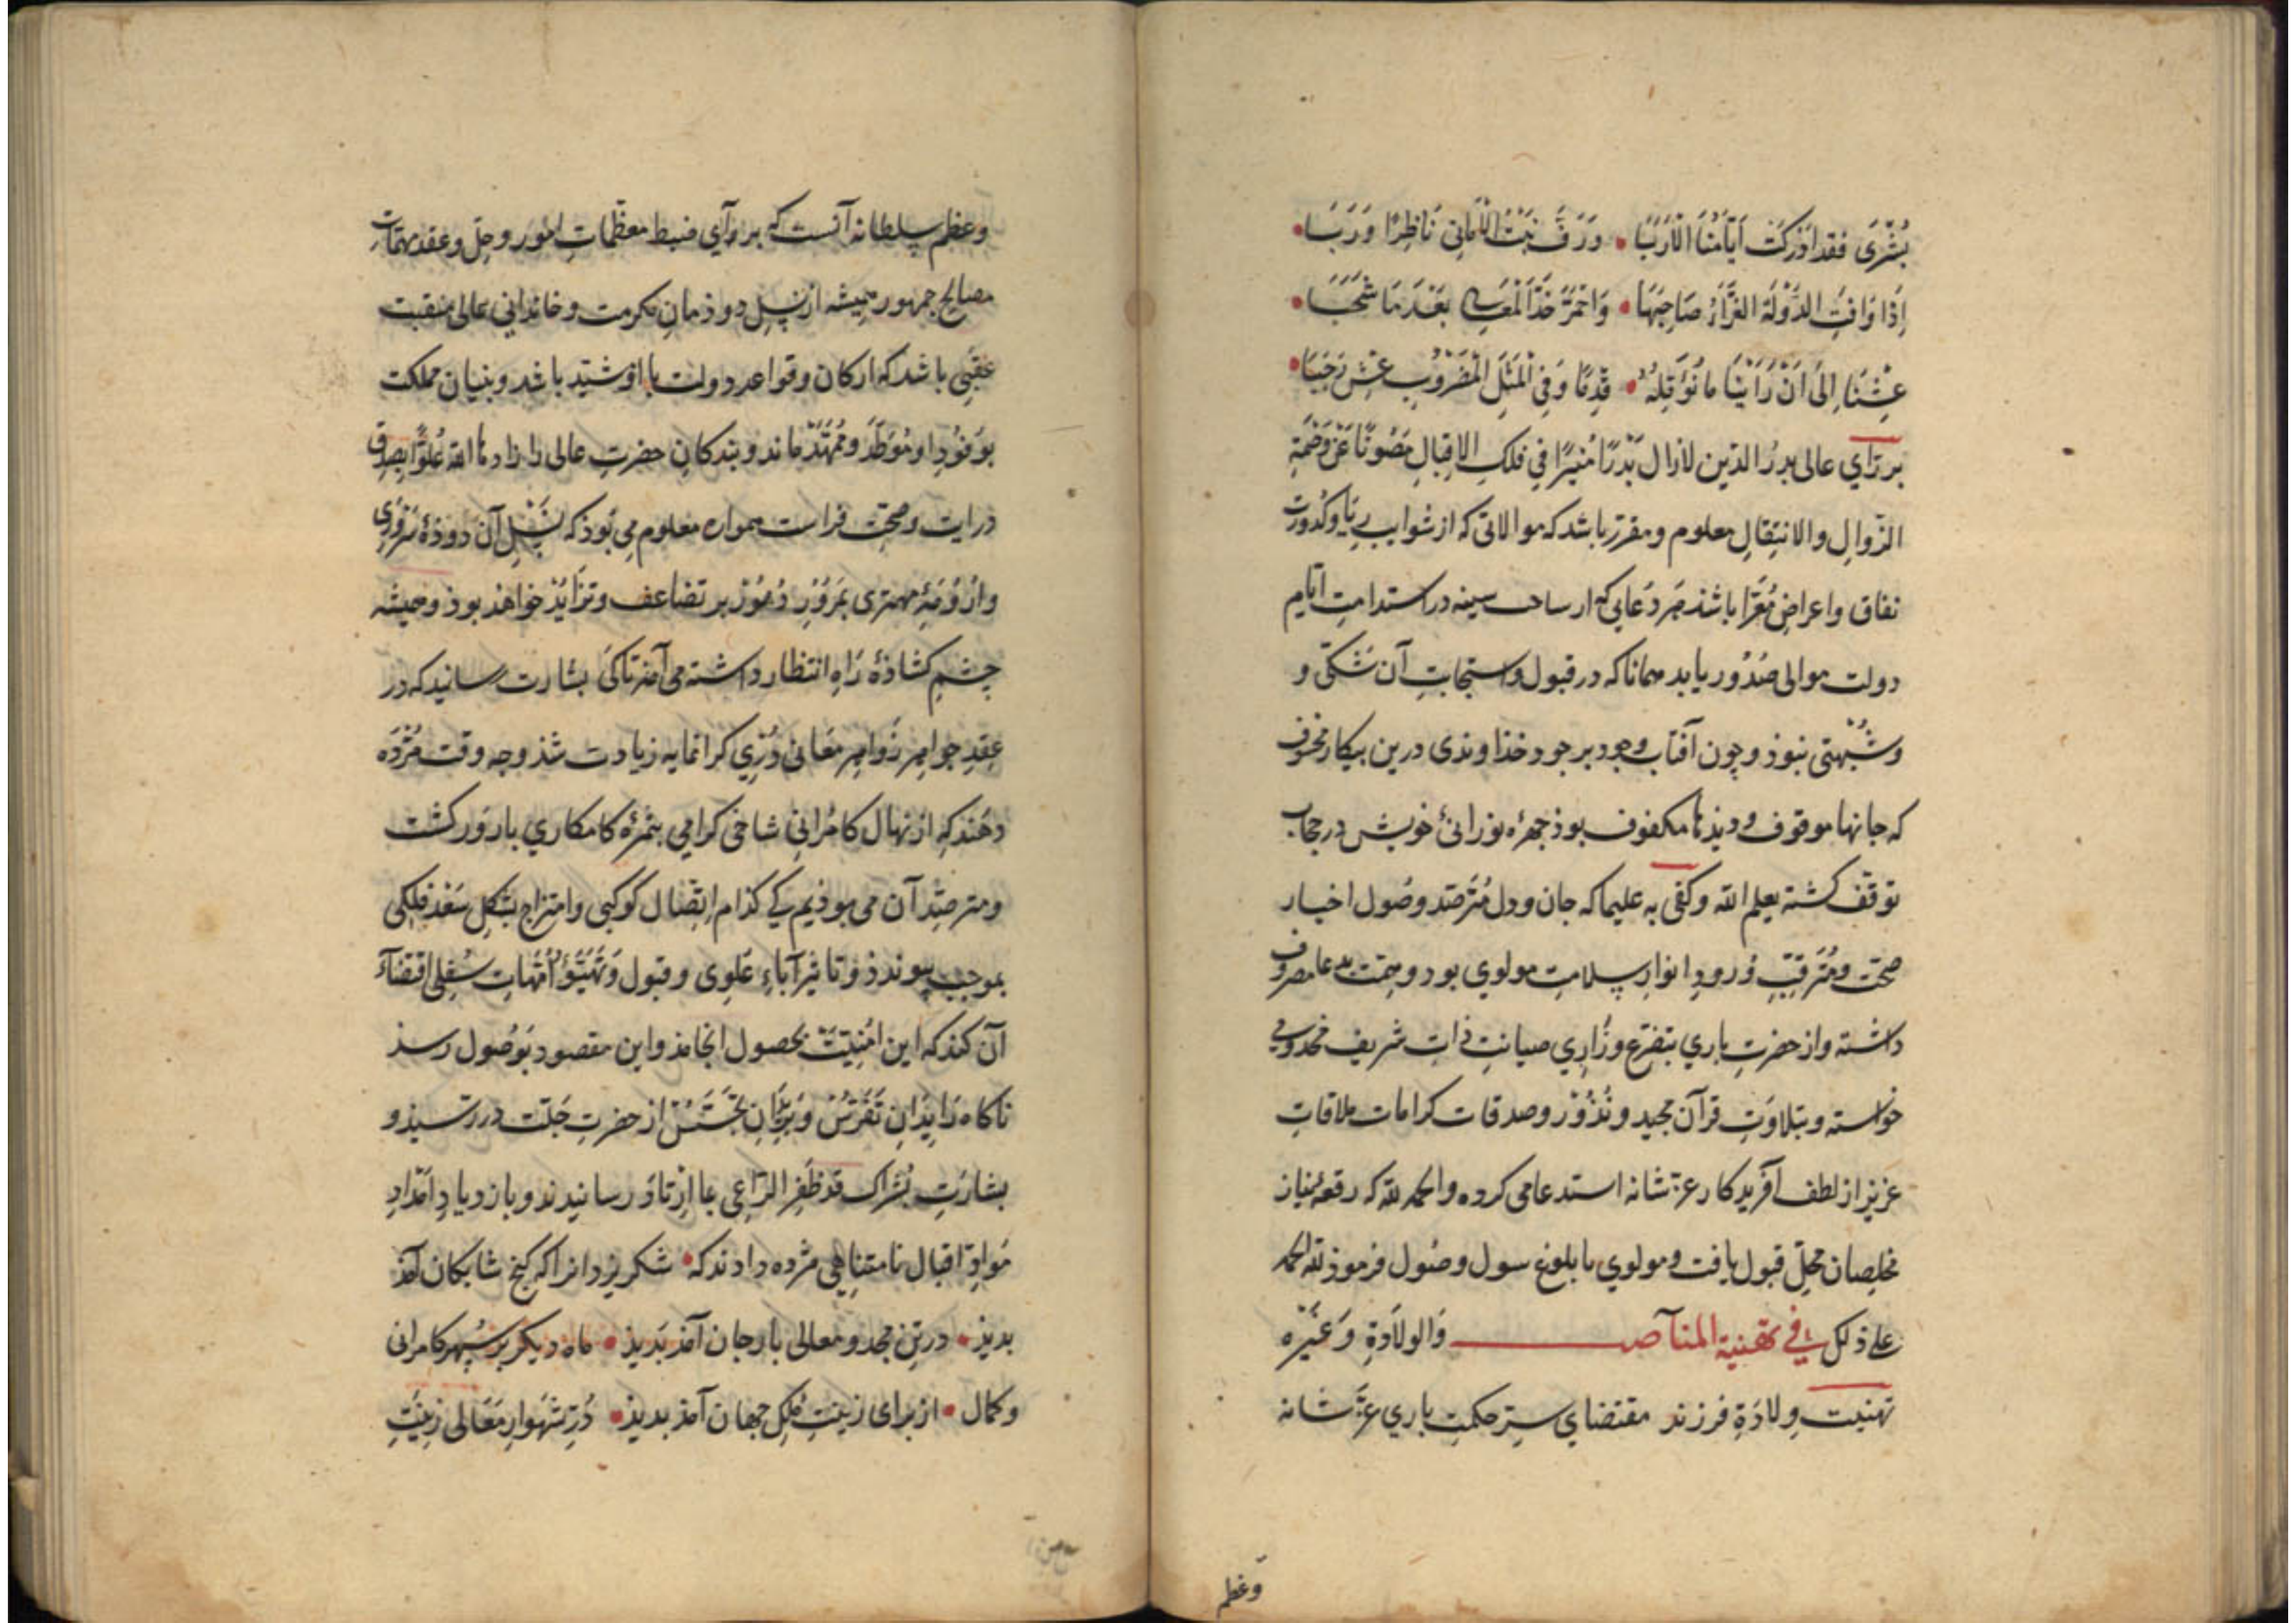 بُشْرَى فقد اَدْرَكَتْ اَيَّامُنَا الْاَرَبَا • وَرَفَّ نَبْتُ الْاَمَانِي نَاظِرًا وَرَبَا •
اِذَا وَافَتِ الدَّوْلَةُ الغَرَّاءُ صَاحِبَهَا • وَاحْمَرَّ خَدُّ الْمَعَالِي بَعْدَ مَا شَحَبَا •
عِشْنَا اِلَى اَنْ رَاَيْنَا مَا نُؤَمِّلُهُ • قِدْمًا وَفِي الْمَثَلِ الْمَضْرُوبِ عِشْ رَجَبَا •
بر رَاي عالى بدرُ الدّين لازال بَدْرًا مُنيرًا فِي فلكِ الاِقبالِ مَصُونًا عَنْ وَصْمَةِ
الزّوالِ والانتِقالِ معلوم و مقرّر باشد كه موالاتى كه از شوايبِ رِيَا و كُدُورت
نفاق و اعراض مُعَرّا باشد هَر دُعايى كه از ساحت سينه در استدامتِ ايّامِ
دولت موالى صُدُور يابد همانا كه در قبول و استجابتِ آن شكّى و
و شُبْهتى نبوذ و چون آفتابِ وجود بر جود خذاوندى درين بيكار مخسوف
كه جانها موقوف و ديذها مكفوف بوذ چهره نورانئ خويش در حجاب
توقّف كشته يعلم الله و كفى به عليما كه جان و دل مُتَرصّد وصُول اخبار
صحّت و مُتَرقّبِ وُرودِ انوارِ سلامتِ مولوي بود و همّت بدعا مصروف
داشته و از حضرتِ باري بتضرّع و زَاري صيانتِ ذاتِ شريف مخدومي
خواسته و بتلاوَتِ قرآن مجيد و نُذُوْر و صدقات كرامات ملاقاتِ
عزيز از لطف آفريدكار عزّ شانه استدعا مى كرده و الحمد لله كه رقعه نياز
مخلِصان محلّ قبول يافت و مولوي با بلوغ سول وصُول فرموذ لله الحمد
على ذلك في تهنية المناصب وَالولاَدَةِ وَغَيْره
تهنيت وِلادَةِ فرزند مقتضاي سرّ حكمتِ باري عزّ شانه
وعظم
وعظم سلطانه آنست كه براي ضبط معظّماتِ امور و حلّ و عقد مهمّاتِ
مصالح جمهور هميشه از نسلِ دوذمانِ مكرمت و خانداني عالى منقبت
عقبى باشد كه اركان و قواعد دولت با او مشيّد باشد و بنيان مملكت
بوُفُودِ او مُوَطَّد و مُمَهّد ماند و بندكانِ حضرتِ عالى را زادها الله عُلوًّا بصدقِ
درايت و صحّتِ فراست همواره معلوم مى بوذ كه نسلِ آن دوذهٔ سَروَري
و اَرُوْمَهٔ مهترى بمرُورِ دُهُوْر بر تضاعف و تزايُد خواهذ بود و هميشه
چشمِ كشاذهٔ رَاهِ انتظار داشته مى آمد تا كى بشارت رسانيد كه در
عِقدِ جواهر زواهر معانى دُرّى كرانمايه زيادت شذ و چه وقت مُژده
دهند كه از نهال كامراني شاخى كرامى بثمرهٔ كامكاري بارور كشت
و مترصّد آن مى بوذيم كه كذام اتّصال كوكبى و امتزاج بشكل سَعْد فلكى
بموجبِ پيوندذ و تاثيرِ آباءِ عَلوِى و قبول و تَهَيّؤِ اُمّهاتِ سُفلى اقتضآءِ
آن كند كه اين اُمْنِيّت بحصول انجامذ و اين مقصود بوُصُول رسذ
ناكاه رايدانِ تَفَرّسْ و بَريدانِ تجسّس از حضرتِ جَلّت در رسيذ و
بشارتِ بُشراك قد ظفِر الرّاعي بما ارتاد رسانيدند و بازديادِ اَمْدادِ
مَوادّ اقبال نامتناهى مژده دادند كه • شكر يزدانرا كه كنج شايكان آمذ
بديذ • در تنِ مجد و معالى باز جان آمذ بَديذ • ماه ديكر بر سپهر كامرانى
و كمال • از براى زينتِ مُلك جهان آمذ بديذ • دُرّ شهوارِ مَعَالى زِينتِ